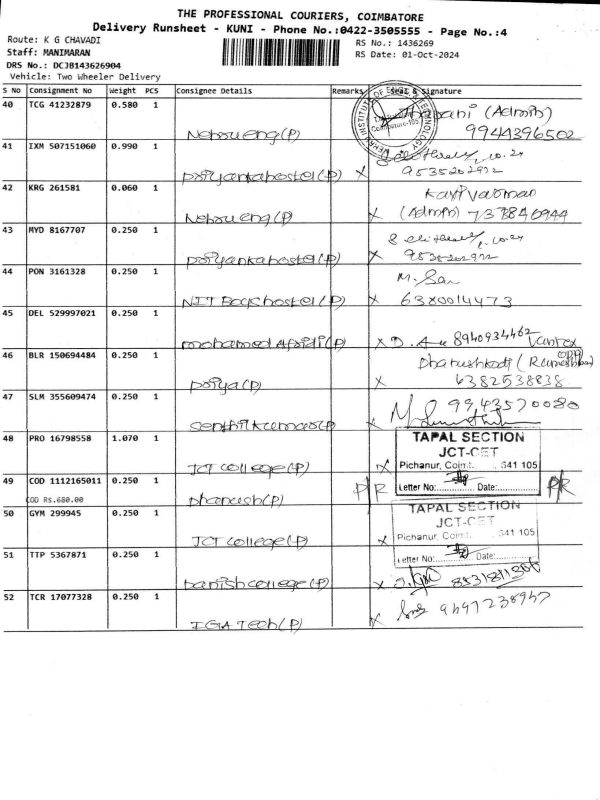 THE PROFESSIONAL COURIERS, COIMBATORE
Delivery Runsheet - KUNI - Phone No.:0422-3505555 - Page No.:4
Route: K G CHAVADI
RS No.: 1436269
Staff: MANIMARAN
RS Date: 01-Oct-2024
DRS No.: DCJB143626904
Vehicle: Two Wheeler Delivery
S No Consignment No Weight PCS Consignee Details Remarks Seal & Signature
40 TCG 41232879 0.580 1
(Admin)
Nehru eng(P) 9944396502
41 IXM 507151060 0.990 1
priyanka hostel(P) X 9535202972
42 KRG 261581 0.060 1
Nehru eng(P) X (Admin) 7373840944
43 MYD 8167707 0.250 1
priyanka hostel(P) X 9535202972
44 PON 3161328 0.250 1
M. San
NIT Boys hostel(P) X 6380014473
45 DEL 529997021 0.250 1
mohamed Afridi(P) X 8940934462
46 BLR 150694484 0.250 1
Dhanushkodi
priya(P) X 6382538838
47 SLM 355609474 0.250 1
9943570080
Senthil kumar(P) X
48 PRO 16798558 1.070 1
TAPAL SECTION
JCT-CET
Pichanur, 641 105
JCT college(P) X
Letter No: Date:
49 COD 1112165011 0.250 1
COD Rs.680.00
Dhanush(P) P/R P/R
50 GYM 299945 0.250 1
TAPAL SECTION
JCT-CET
Pichanur, 641 105
JCT college(P) X
Letter No: Date:
51 TTP 5367871 0.250 1
Danish college(P) X
52 TCR 17077328 0.250 1
9497238947
IGA Tech(P) X